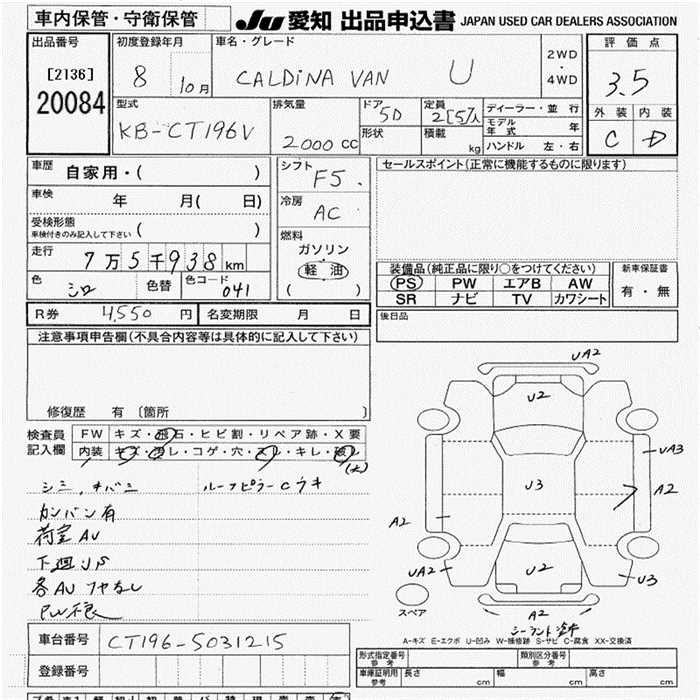 車内保管・守衛保管
JU 愛知 出品申込書 JAPAN USED CAR DEALERS ASSOCIATION
出品番号
[2136]
20084
初度登録年月
8 10月
車名・グレード
CALDINA VAN U
2WD
・
4WD
評価点
3.5
外装 内装
C D
型式
KB-CT196V
排気量
2000 CC
ドア 5D
形状
定員 2[5]人
積載 kg
ディーラー・並行
モデル年式 年
ハンドル 左・右
車歴 自家用・( )
車検 年 月( 日)
受検形態
車検付きのみ記入して下さい ( )
走行 7万5千938km
色 シロ 色替 色コード 041
シフト F5.
冷房 AC
燃料
ガソリン
軽油
( )
セールスポイント(正常に機能するものに限ります)
装備品(純正品に限り○をつけてください)
PS PW エアB AW
SR ナビ TV カワシート
新車保証書
有・無
R券 4,550円 名変期限 月 日
後日品
注意事項申告欄(不具合内容等は具体的に記入して下さい)
修復歴 有 〔箇所 〕
検査員 記入欄
FW キズ・飛石・ヒビ割・リペア跡・X要
内装 キズ・汚レ・コゲ・穴・スレ・キレ・破レ
(大)
シミ、キバミ ルーフピラーCウキ
カンバン有
荷室AU
下廻りS
各AU ツヤなし
UA2
U2
UA3
A2
U3
A2
UA2
U2
U3
スペア
A2
A-キズ E-エクボ U-凹み W-補修跡 S-サビ C-腐食 XX-交換済
車台番号 CT196-5031215
登録番号
形式指定番号 参考
類別区分番号 参考
車庫証明用 参考 長さ cm 幅 cm 高さ cm